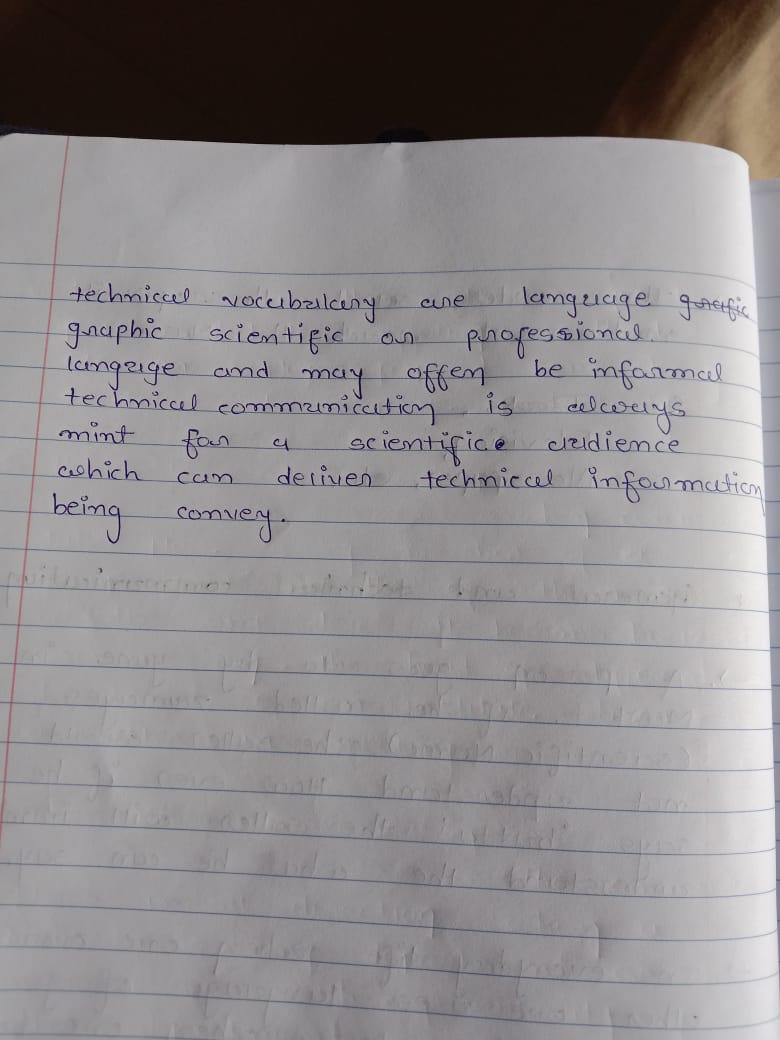 technical vocabulary are language grafic
graphic scientific or professional.
langzige and may offen be informal
technical communication is always
mint for a scientifice audience
which can deliver technical information
being convey.